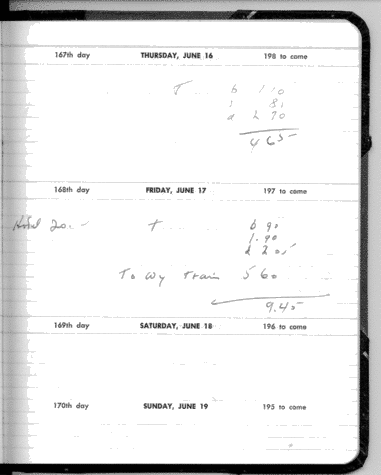 167th day THURSDAY, JUNE 16 198 to come
T b 1 10
l 85
d 2 70
4 65
168th day FRIDAY, JUNE 17 197 to come
Hotel 20.- T b 90
1.90
d 2 05
To train 5 60
9.45
169th day SATURDAY, JUNE 18 196 to come
170th day SUNDAY, JUNE 19 195 to come